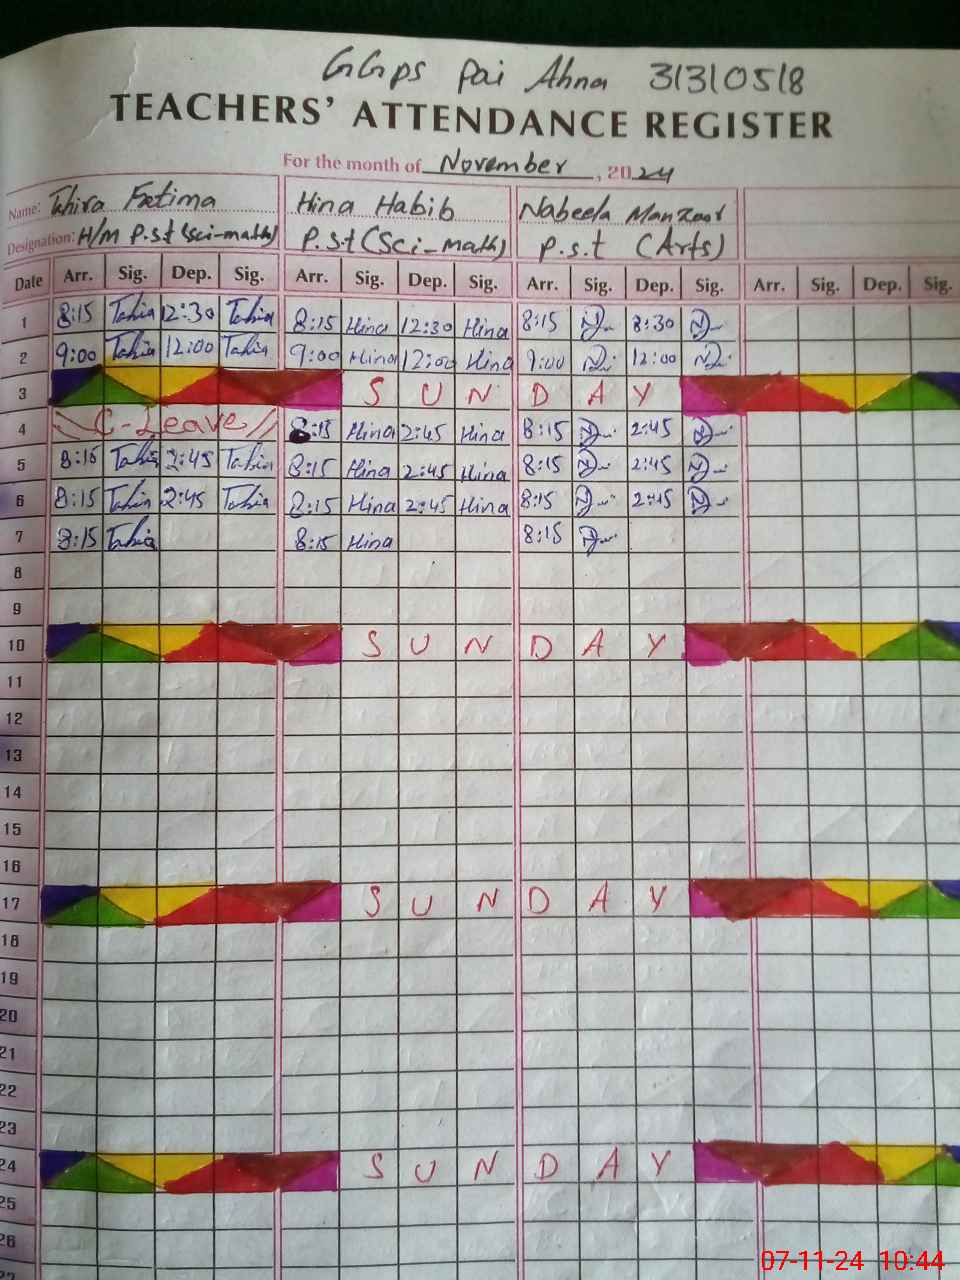 GGps Pai Ahna 31310518
TEACHERS' ATTENDANCE REGISTER
For the month of November, 2024
Name: Tahira Fatima Hina Habib Nabeela Manzoor
Designation: H/M P.s.t (sci-math) P.S.t (Sci-math) P.s.t (Arts)
Date Arr. Sig. Dep. Sig. Arr. Sig. Dep. Sig. Arr. Sig. Dep. Sig. Arr. Sig. Dep. Sig.
1 8:15 Tahira 12:30 Tahira 8:15 Hina 12:30 Hina 8:15 8:30
2 9:00 Tahira 12:00 Tahira 9:00 Hina 12:00 Hina 9:00 12:00
3 SUNDAY
4 C-Leave 8:15 Hina 2:45 Hina 8:15 2:45
5 8:15 Tahira 2:45 Tahira 8:15 Hina 2:45 Hina 8:15 2:45
6 8:15 Tahira 2:45 Tahira 8:15 Hina 2:45 Hina 8:15 2:45
7 8:15 Tahira 8:15 Hina 8:15
8
9
10 SUNDAY
11
12
13
14
15
16
17 SUNDAY
18
19
20
21
22
23
24 SUNDAY
25
26
07-11-24 10:44